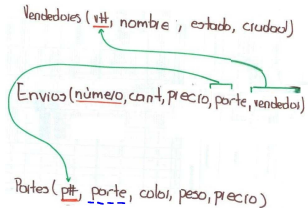 Vendedores (v#, nombre, estado, ciudad)
Envíos (número, cant, precio, parte, vendedor)
Partes (p#, parte, color, peso, precio)